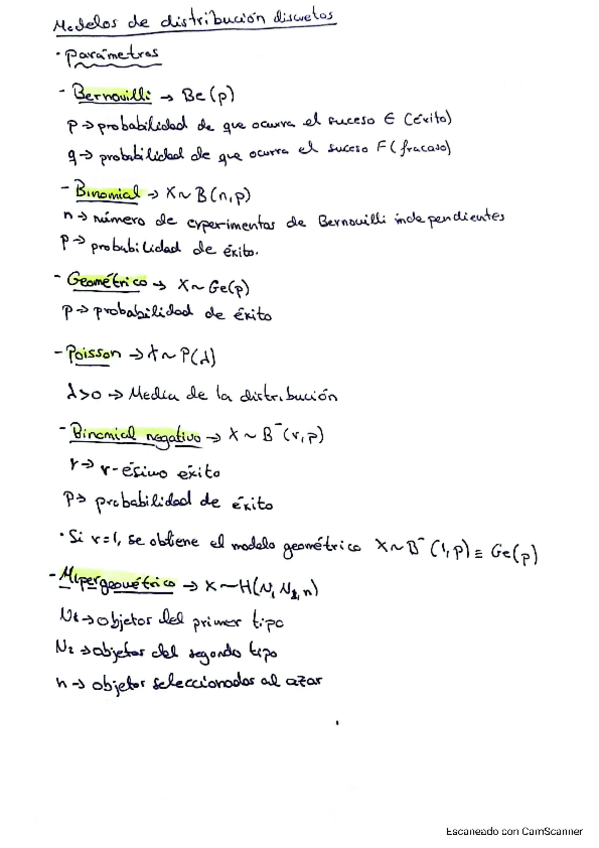 Modelos de distribución discretos
· Parámetros
- Bernouilli → Be(p)
p → probabilidad de que ocurra el suceso E (éxito)
q → probabilidad de que ocurra el suceso F (fracaso)
- Binomial → X ~ B(n,p)
n → número de experimentos de Bernouilli independientes
p → probabilidad de éxito.
- Geométrico → X ~ Ge(p)
p → probabilidad de éxito
- Poisson → X ~ P(λ)
λ>0 → Media de la distribución
- Binomial negativo → X ~ B⁻(r,p)
r → r-ésimo éxito
p → probabilidad de éxito
· Si r=1, se obtiene el modelo geométrico X ~ B⁻(1,p) ≡ Ge(p)
- Hipergeométrico → X ~ H(N₁, N₂, n)
N₁ → objetos del primer tipo
N₂ → objetos del segundo tipo
n → objetos seleccionados al azar
Escaneado con CamScanner